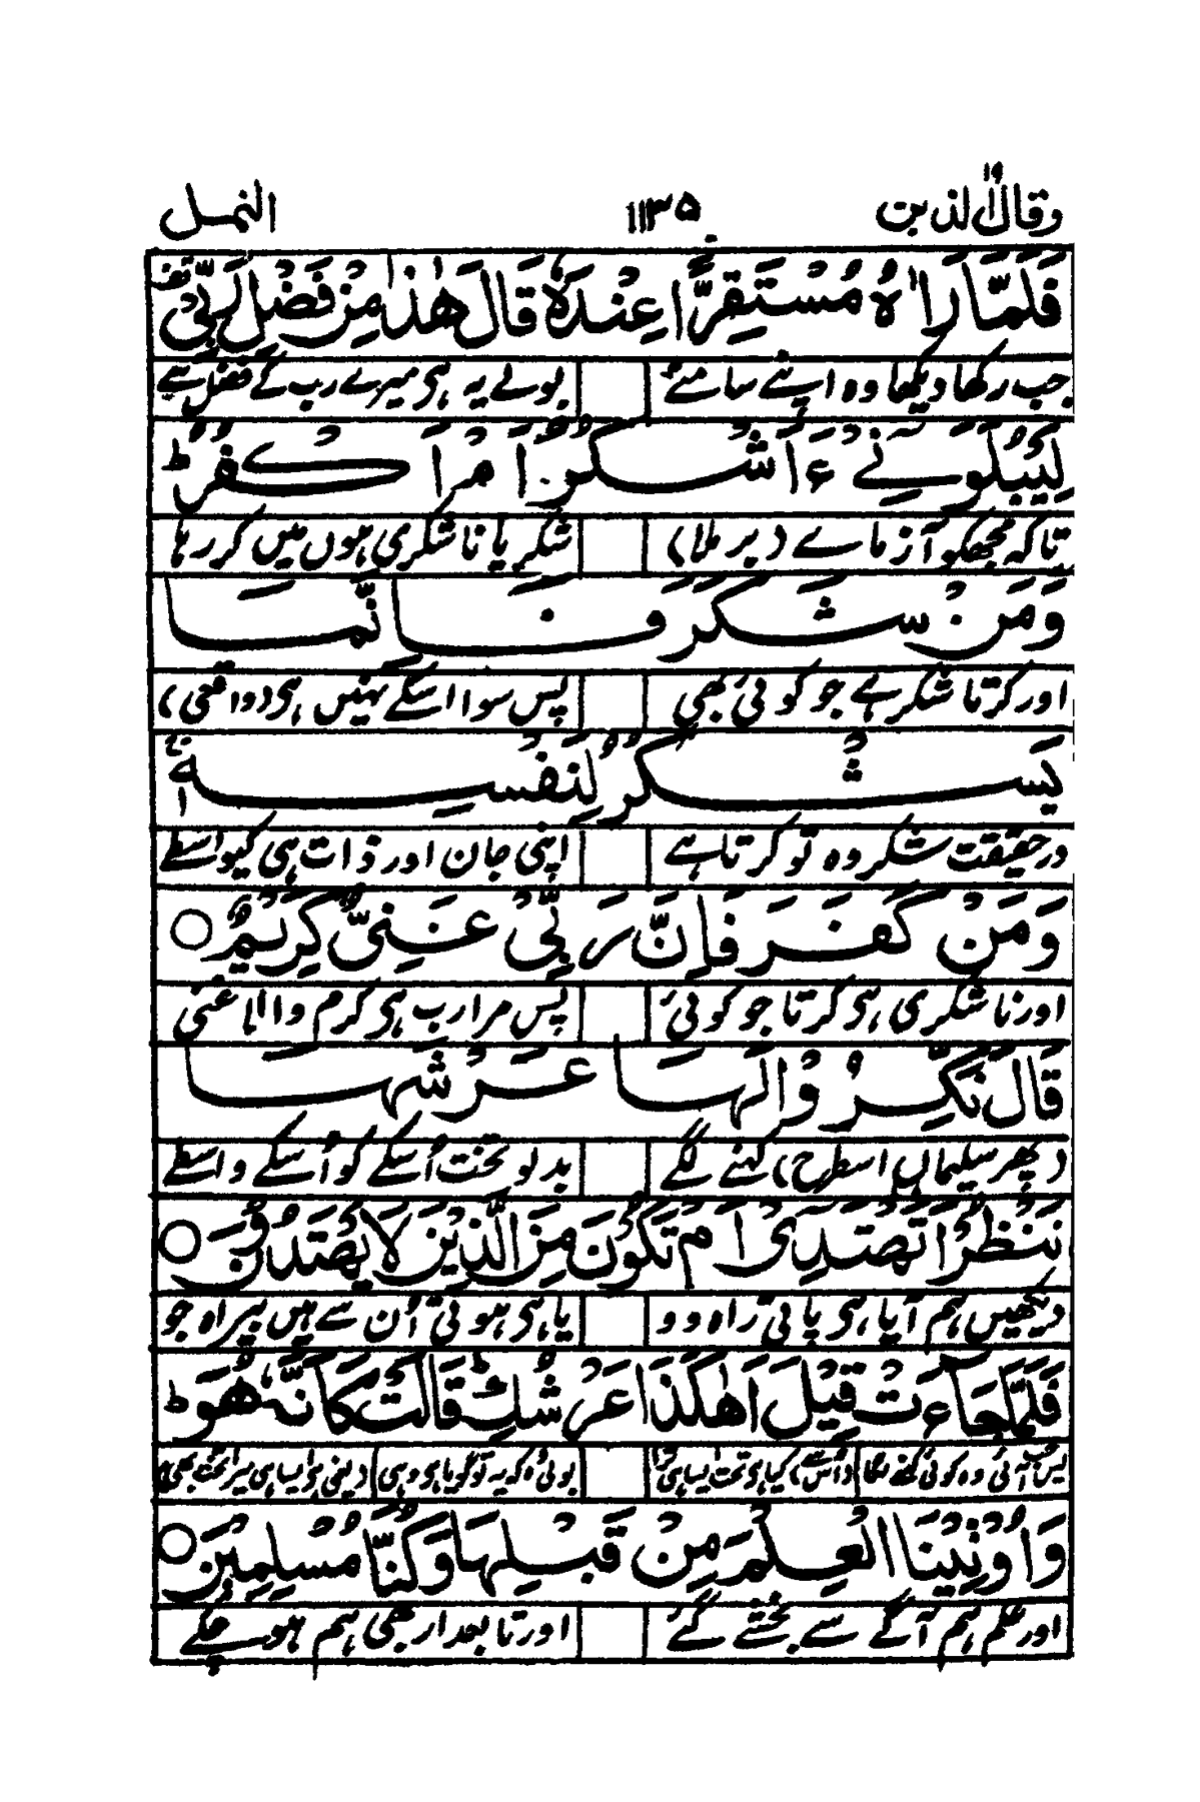 وقال الذین ۱۹ ۱۱۳۵ النمل
فَلَمَّا رَاٰهُ مُسْتَقِرًّا عِنْدَهٗ قَالَ هٰذَا مِنْ فَضْلِ رَبِّیْ
جب رکھا دیکھا وہ اپنے سامنے بولے یہ ہی میرے رب کے فضل سے
لِیَبْلُوَنِیْ ءَاَشْكُرُ اَمْ اَكْفُرُ ؕ
تاکہ مجھکو آزماے (پر ملا) شکر یا ناشکری ہوں میں کر رہا
وَمَنْ شَكَرَ فَاِنَّمَا
اور کرتا شکر ہے جو کوئی بھی پس سوا اسکے نہیں ہی (واقعی)
یَشْكُرُ لِنَفْسِهٖ
درحقیقت شکر وہ تو کرتا ہے اپنی جان اور ذات ہی کیواسطے
وَمَنْ كَفَرَ فَاِنَّ رَبِّیْ غَنِیٌّ كَرِیْمٌ ○
اور ناشکری ہی کرتا جو کوئی پس مرا رب ہی کرم والا غنی
قَالَ نَكِّرُوْا لَهَا عَرْشَهَا
(پھر سلیماں اسطرح) کہنے لگے بدلو تخت اُسکے کو اُسکے واسطے
نَنْظُرْ اَتَهْتَدِیْۤ اَمْ تَكُوْنُ مِنَ الَّذِیْنَ لَا یَهْتَدُوْنَ ○
دیکھیں ہم آیا ہی پاتی راہ وو یا ہی ہوتی اُن سے ہیں بیراہ جو
فَلَمَّا جَآءَتْ قِیْلَ اَهٰكَذَا عَرْشُكِ ؕ قَالَتْ كَاَنَّهٗ هُوَ ؕ
پس جب آئی وہ کوئی کہنے لگا (اُس سے) کیا ہی تخت ایسا ہی ترا بولی کہ یہ تو گویا ہی وہی (یعنی ہی ایسا ہی میرا تخت بھی)
وَاُوْتِیْنَا الْعِلْمَ مِنْ قَبْلِهَا وَكُنَّا مُسْلِمِیْنَ ○
اور علم ہم آگے سے بخشے گئے اور تابعدار بھی ہم ہو چکے